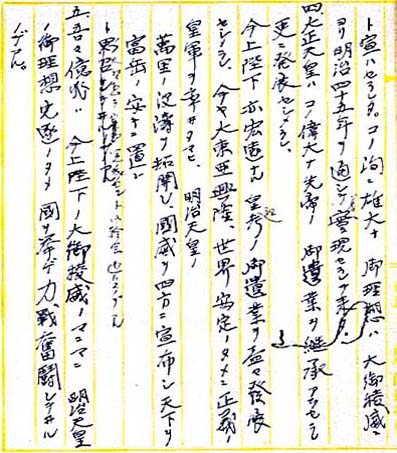 ト宣ハセラレタ。コノ洵ニ雄大ナ御理想ハ大御稜威ニ
ヨリ明治四十五年ヲ通ジテ着々実現セラレ来タ。
四、大正天皇ハコノ偉大ナ先帝ノ御遺業ヲ継承アラセラレ
更ニ発展セシメラレ、
今上陛下亦宏遠ナル皇祖皇考ノ御遺業ヲ益々発展
セシメラレ、今ヤ大東亜興隆、世界安定ノタメニ正義ノ
皇軍ヲ率ヰタマヒ、明治天皇ノ
萬里ノ波濤ヲ拓開シ、國威ヲ四方ニ宣布シ天下ヲ
富岳ノ安キニ置カ
ント
五、吾々億兆ハ今上陛下ノ大御稜威ノマニマニ明治天皇
ノ御理想完遂ノタメ國ヲ挙ゲ力戦奮闘シテヰル
ノデアル。